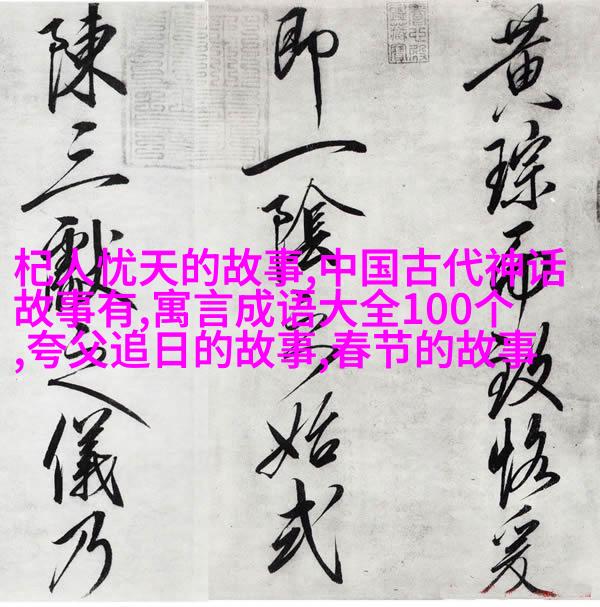 黄琮而致恪爰
即一陰始式
陳三獻之儀乃
杞人忧天的故事,中国古代神话
故事有,寓言成语大全100个
,夸父追日的故事,春节的故事